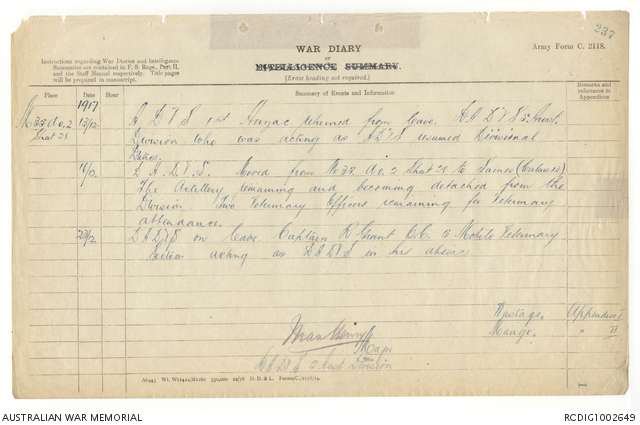 237
WAR DIARY
or
INTELLIGENCE SUMMARY.
(Erase heading not required.)
Army Form C. 2118.
Instructions regarding War Diaries and Intelligence
Summaries are contained in F. S. Regs., Part II.
and the Staff Manual respectively. Title pages
will be prepared in manuscript.
Place Date Hour Summary of Events and Information Remarks and references to Appendices
1917
Sheet 28 13/12 A.D.V.S. 1st Anzac returned from leave. D.A.D.V.S. 2 Aust.
Division who was acting as A.D.V.S. resumed Divisional
Duties.
16/12 D.A.D.V.S. Moved from No 32 A.o.2 Sheet 28 to Samer
The Artillery remaining and becoming detached from the
Division Two Veterinary Officers remaining for Veterinary
attendance.
D.A.D.V.S on leave Captain R Grant O.C. 2 Mobile Veterinary
Section acting as D.A.D.V.S in his absence
Appendices I
Mange. " II
Major
D.A.D.V.S 2 Aust Division
AUSTRALIAN WAR MEMORIAL
RCDIG1002649